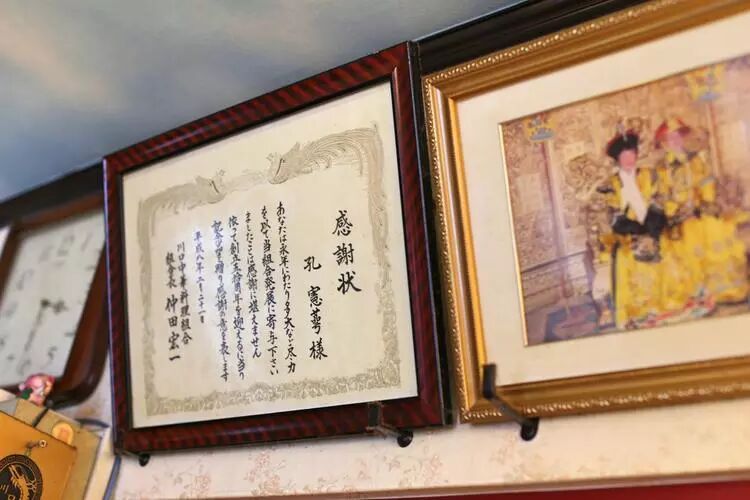 感謝状
孔 憲 様
あなたは永年にわたり多大なご尽力
を以て当組合発展に寄与下さい
ましたことは感謝に堪えません
依って創立五拾周年を迎えるに当り
記念品を贈り感謝の意を表します
平成八年二月二十一日
川口中華料理組合
組合長 仲田宏一